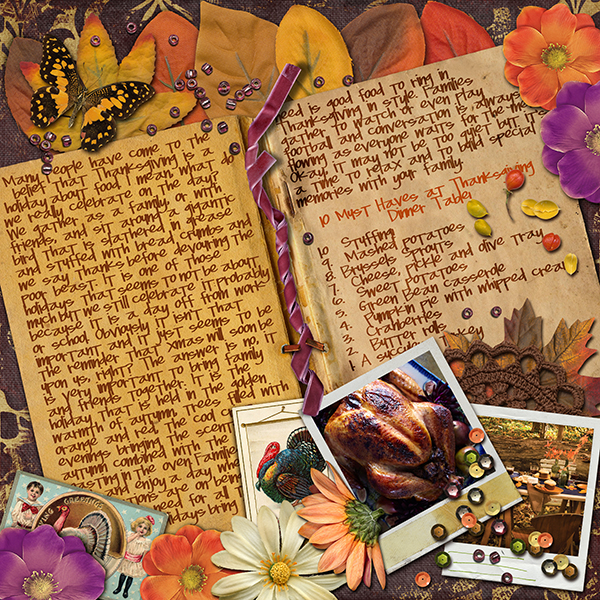 Many people have come to the
belief that Thanksgiving is a
holiday about food. I mean what do
we really celebrate on the day?
We gather as a family or with
friends, and sit around a gigantic
bird that is slathered in grease
and stuffed with bread crumbs and
we say thanks before devouring the
poor beast. It is one of those
holidays that seems to not be about
much but we still celebrate it probably
because it is a day off from work
or school. Obviously it isn't that
important and it just seems to be
the reminder that Xmas will soon be
upon us right? The answer is no, it
is very important to bring family
and friends together. It is the
holiday that is held in the golden
warmth of autumn. Trees glow
orange and red. The cool crisp
evenings bringing the scent of
autumn combined with the
roasting in the oven. Families
and enjoy a day
are on being
need for all
holidays bring
need is good food to ring in
Thanksgiving in style. Families
gather to watch or even play
football and conversation is always
flowing as everyone waits for the
okay. It may not be too quiet but it's
a time to relax and to build special
memories with your family.
10 Must Haves at Thanksgiving
Dinner Table:
10. Stuffing
9. Mashed potatoes
8. Brussels Sprouts
Cheese, pickle and olive tray
7. Sweet potatoes
6. Green Bean Casserole
Pumpkin pie with whipped cream
4. Cranberries
Butter rolls
1. A
GREETING